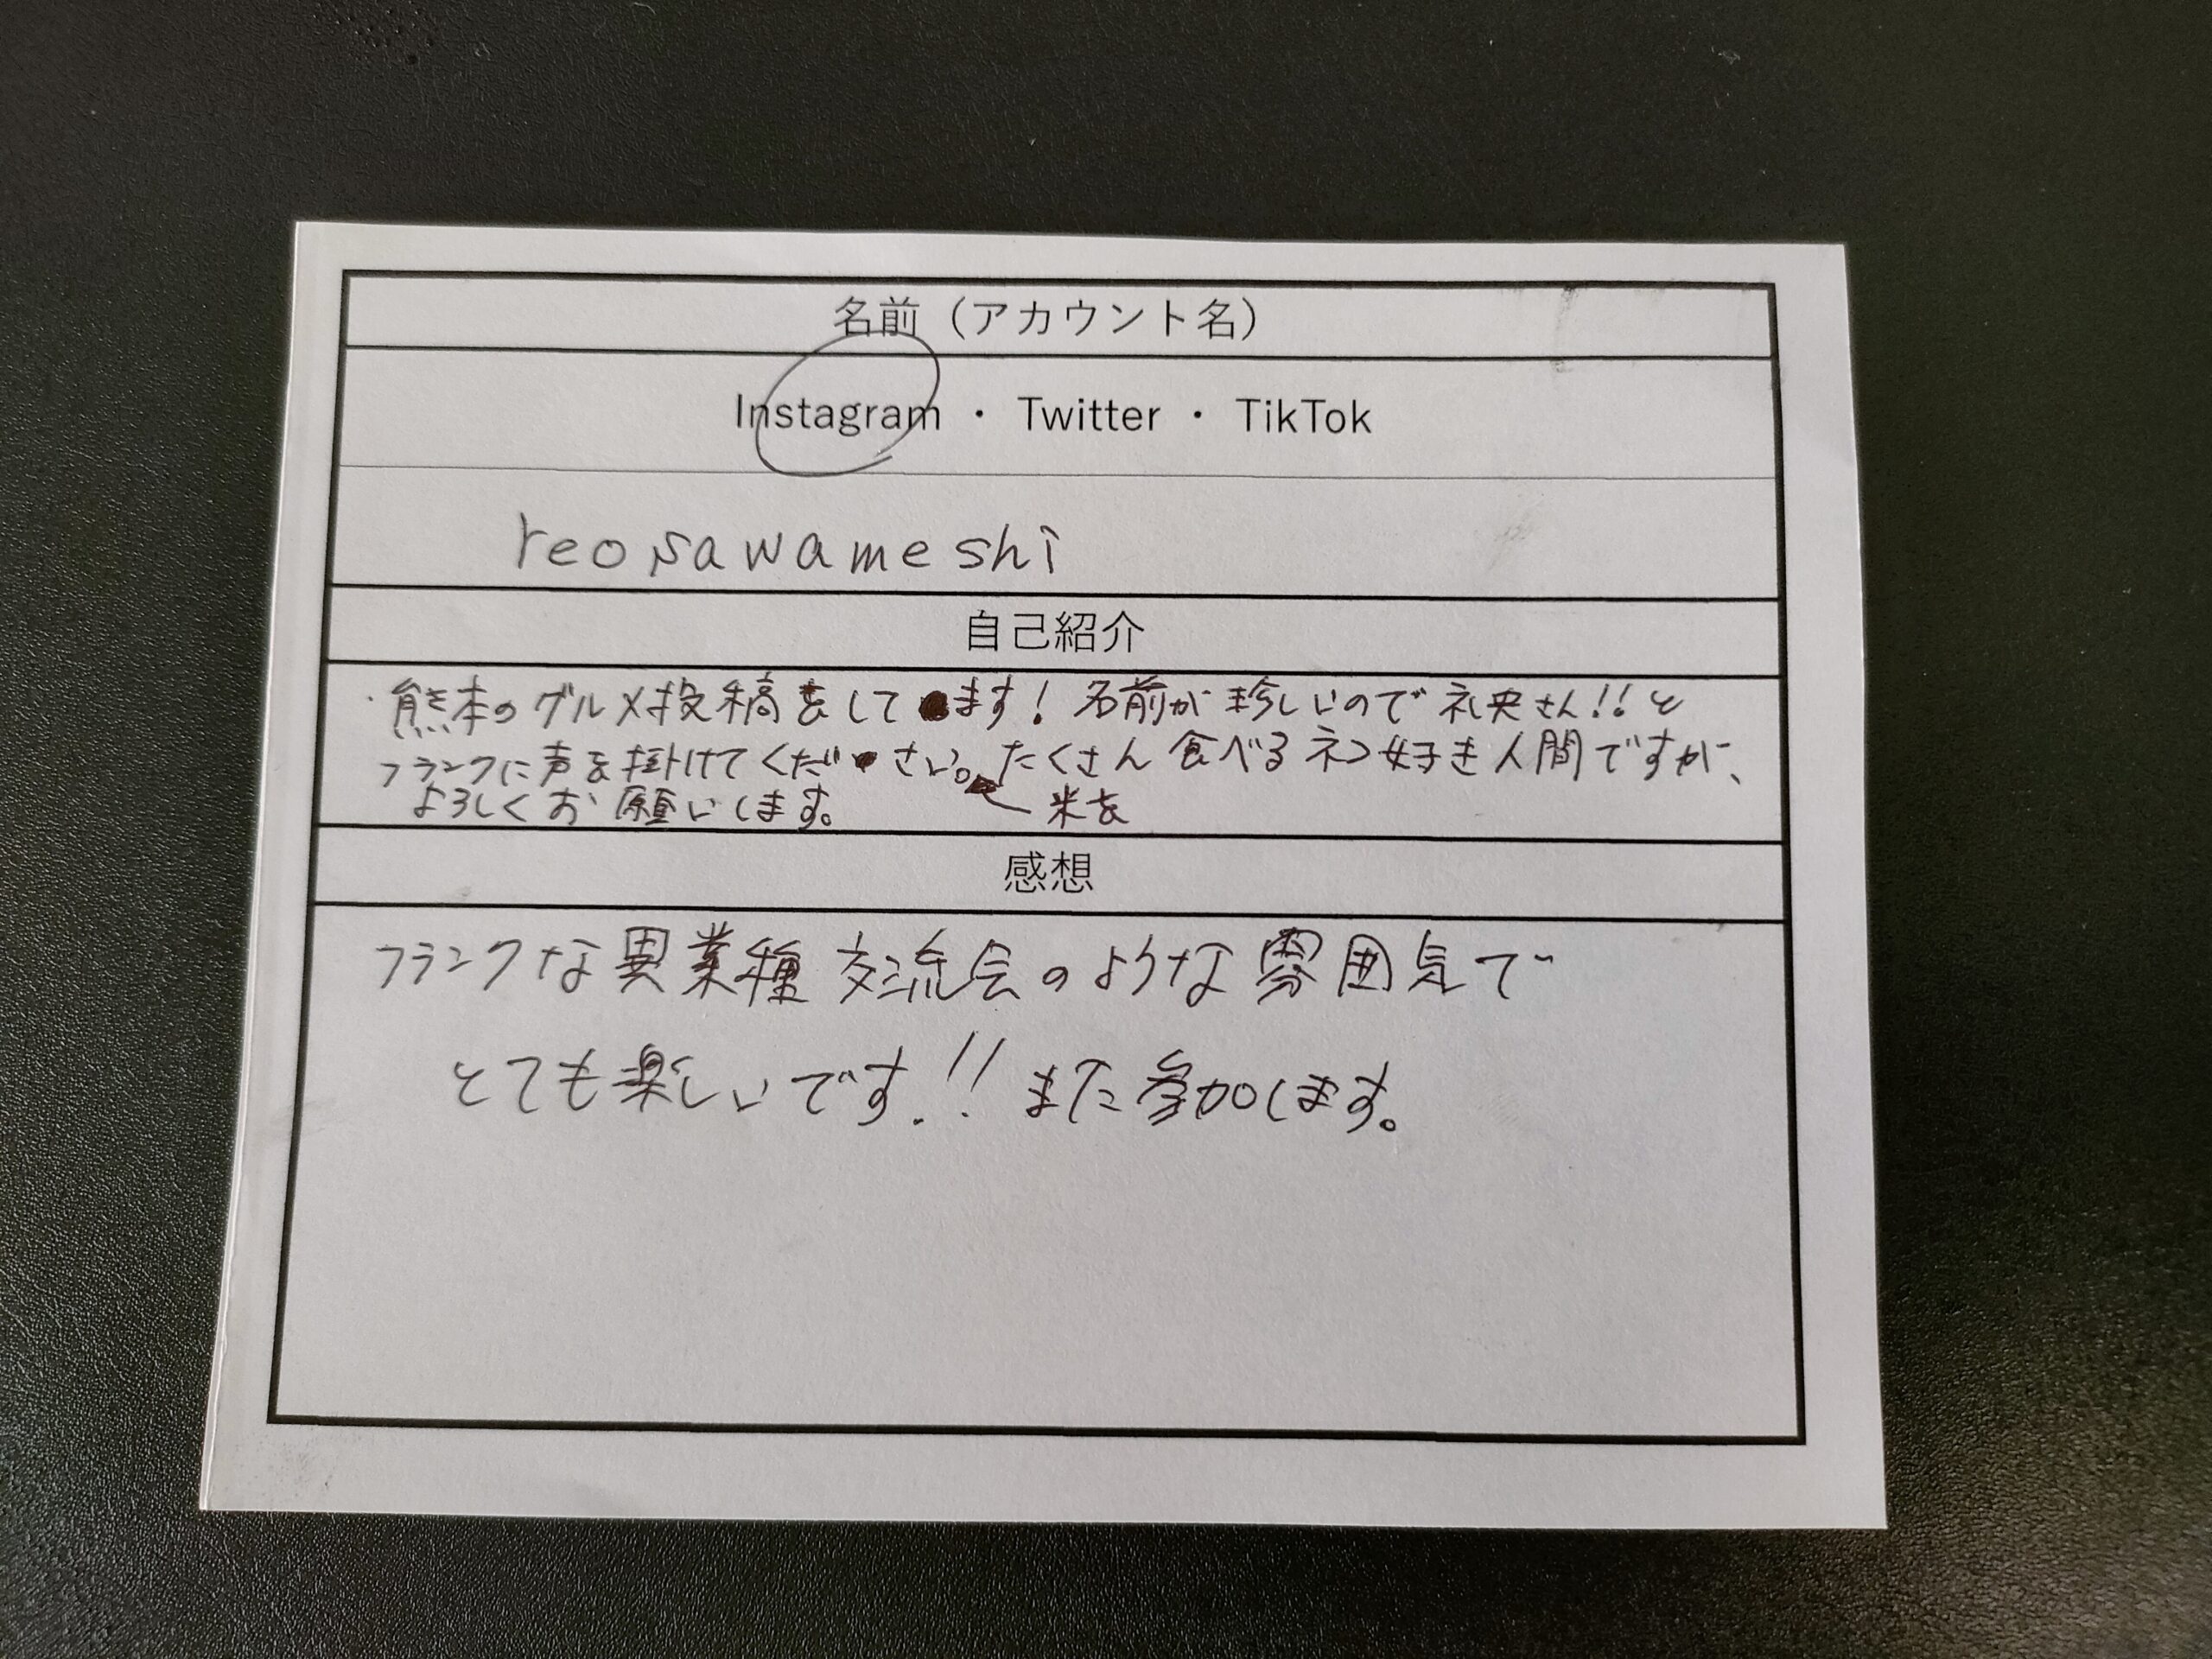 名前（アカウント名）
Instagram ・ Twitter ・ TikTok
reosawameshi
自己紹介
・熊本のグルメ投稿をしてます！名前が珍しいので礼央さん!!と
フランクに声を掛けてください。たくさん食べるネコ好き人間ですが、
米を
よろしくお願いします。
感想
フランクな異業種交流会のような雰囲気で
とても楽しいです!!また参加します。